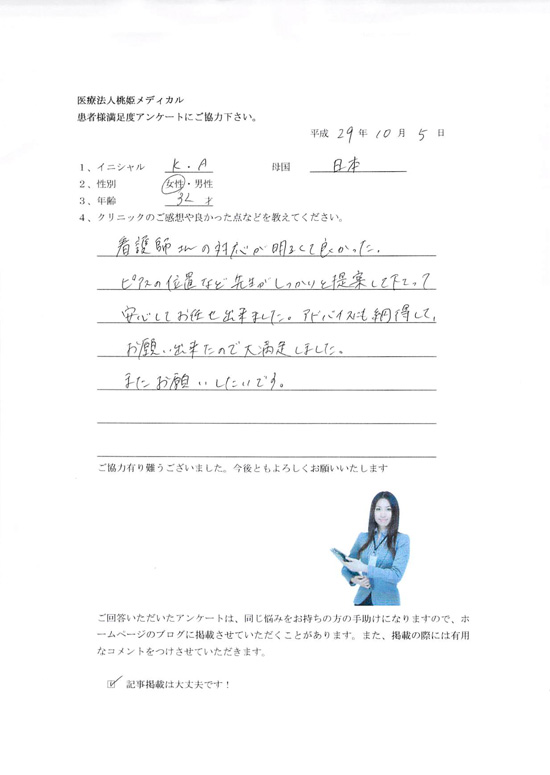 医療法人桃姫メディカル
患者様満足度アンケートにご協力下さい。
平成 29 年 10 月 5 日
1、イニシャル K.A 母国 日本
2、性別 女性・男性
3、年齢 才
4、クリニックのご感想や良かった点などを教えてください。
看護師さんの対応が明るくて良かった。
ピアスの位置など先生がしっかりと提案して下さって
安心してお任せ出来ました。アドバイスにも納得して、
お願い出来たので大満足しました。
またお願いしたいです。
ご協力有り難うございました。今後ともよろしくお願いいたします
ご回答いただいたアンケートは、同じ悩みをお持ちの方の手助けになりますので、ホ
ームページのブログに掲載させていただくことがあります。また、掲載の際には有用
なコメントをつけさせていただきます。
記事掲載は大丈夫です！